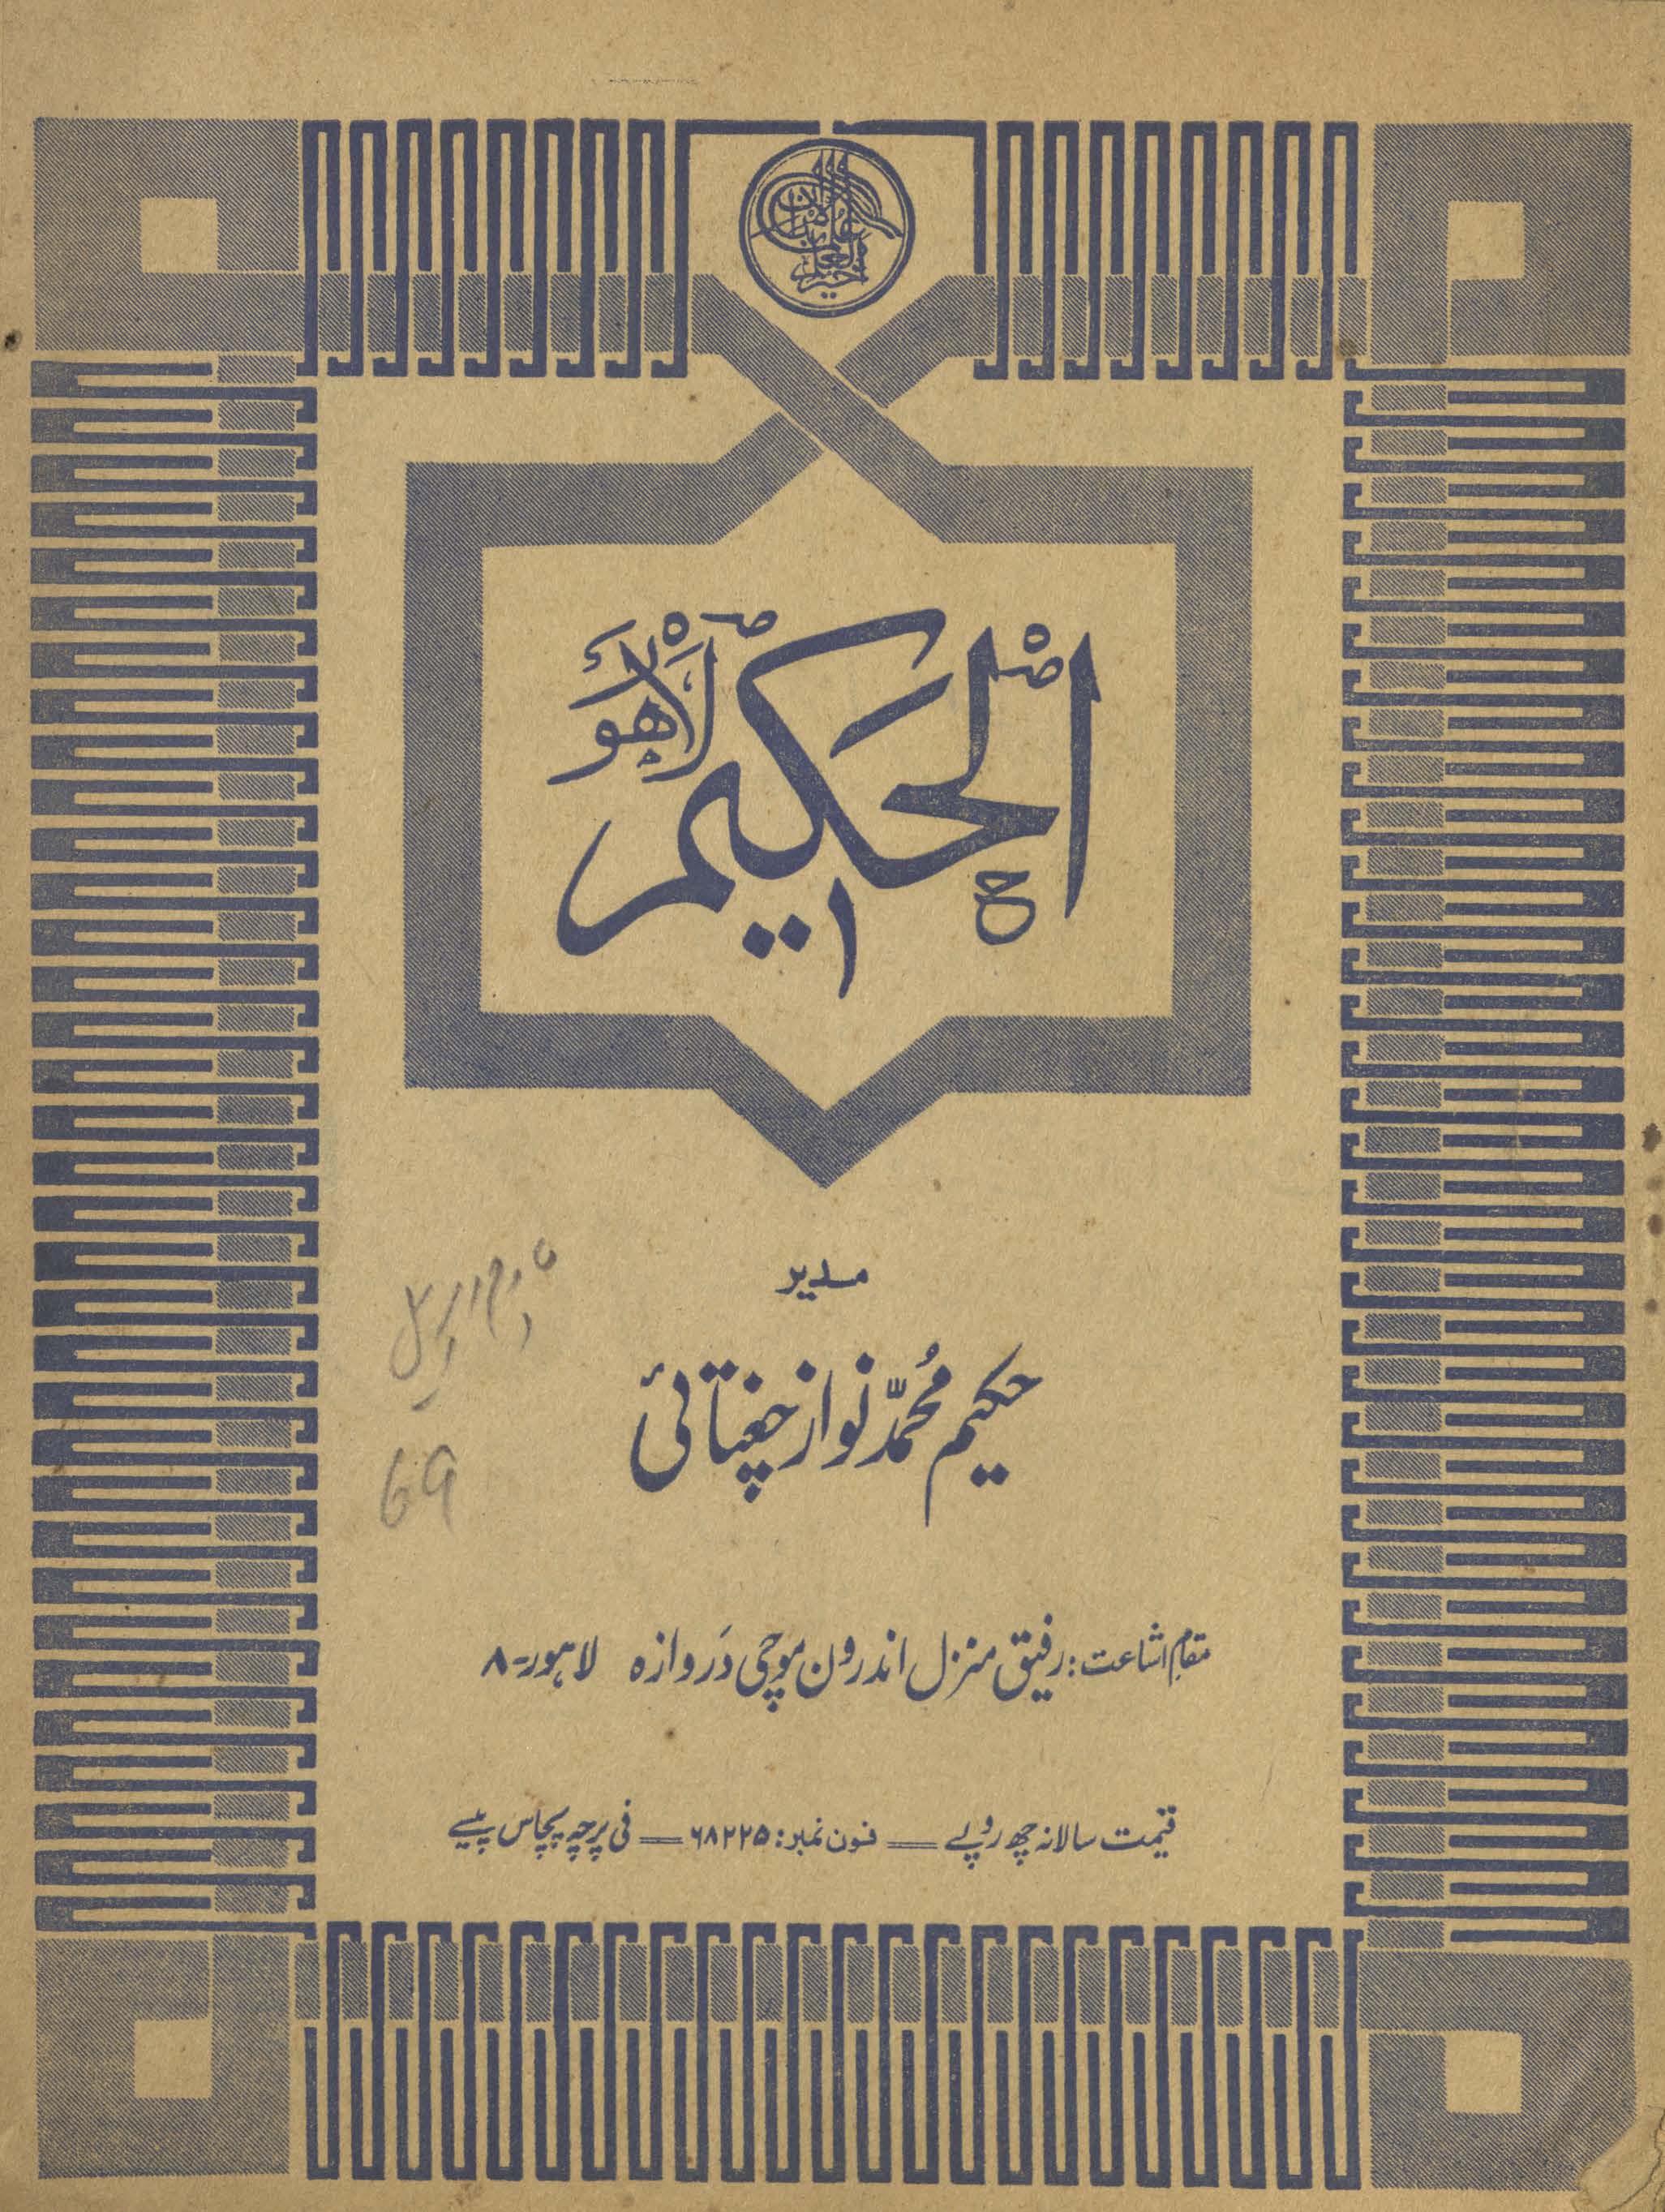 الحکیم لاہور
مدیر
حکیم محمّد نواز چغتائی
مقامِ اشاعت: رفیق منزل اندرون موچی دَروازہ لاہور-۸
قیمت سالانہ چھ روپے — فون نمبر: ۶۸۲۲۵ — فی پرچہ پچاس پیسے
69